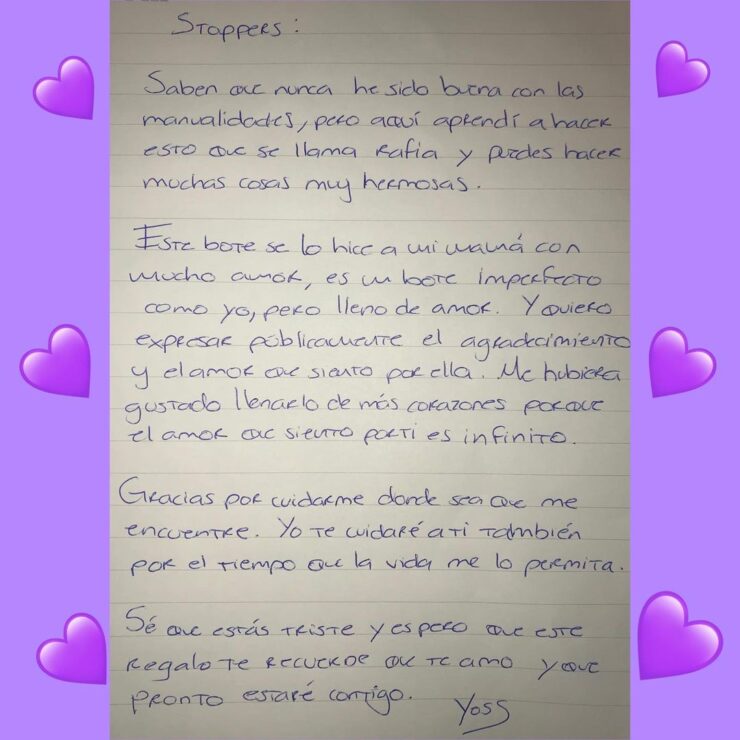 Stoppers:
Saben que nunca he sido buena con las
manualidades, pero aquí aprendí a hacer
esto que se llama Rafia y puedes hacer
muchas cosas muy hermosas.
Este bote se lo hice a mi mamá con
mucho amor, es un bote imperfecto
como yo, pero lleno de amor. Y quiero
expresar públicamente el agradecimiento
y el amor que siento por ella. Me hubiera
gustado llenarlo de más corazones porque
el amor que siento por ti es infinito.
Gracias por cuidarme donde sea que me
encuentre. Yo te cuidaré a ti también
por el tiempo que la vida me lo permita.
Sé que estás triste y espero que este
regalo te recuerde que te amo y que
pronto estaré contigo.
Yoss